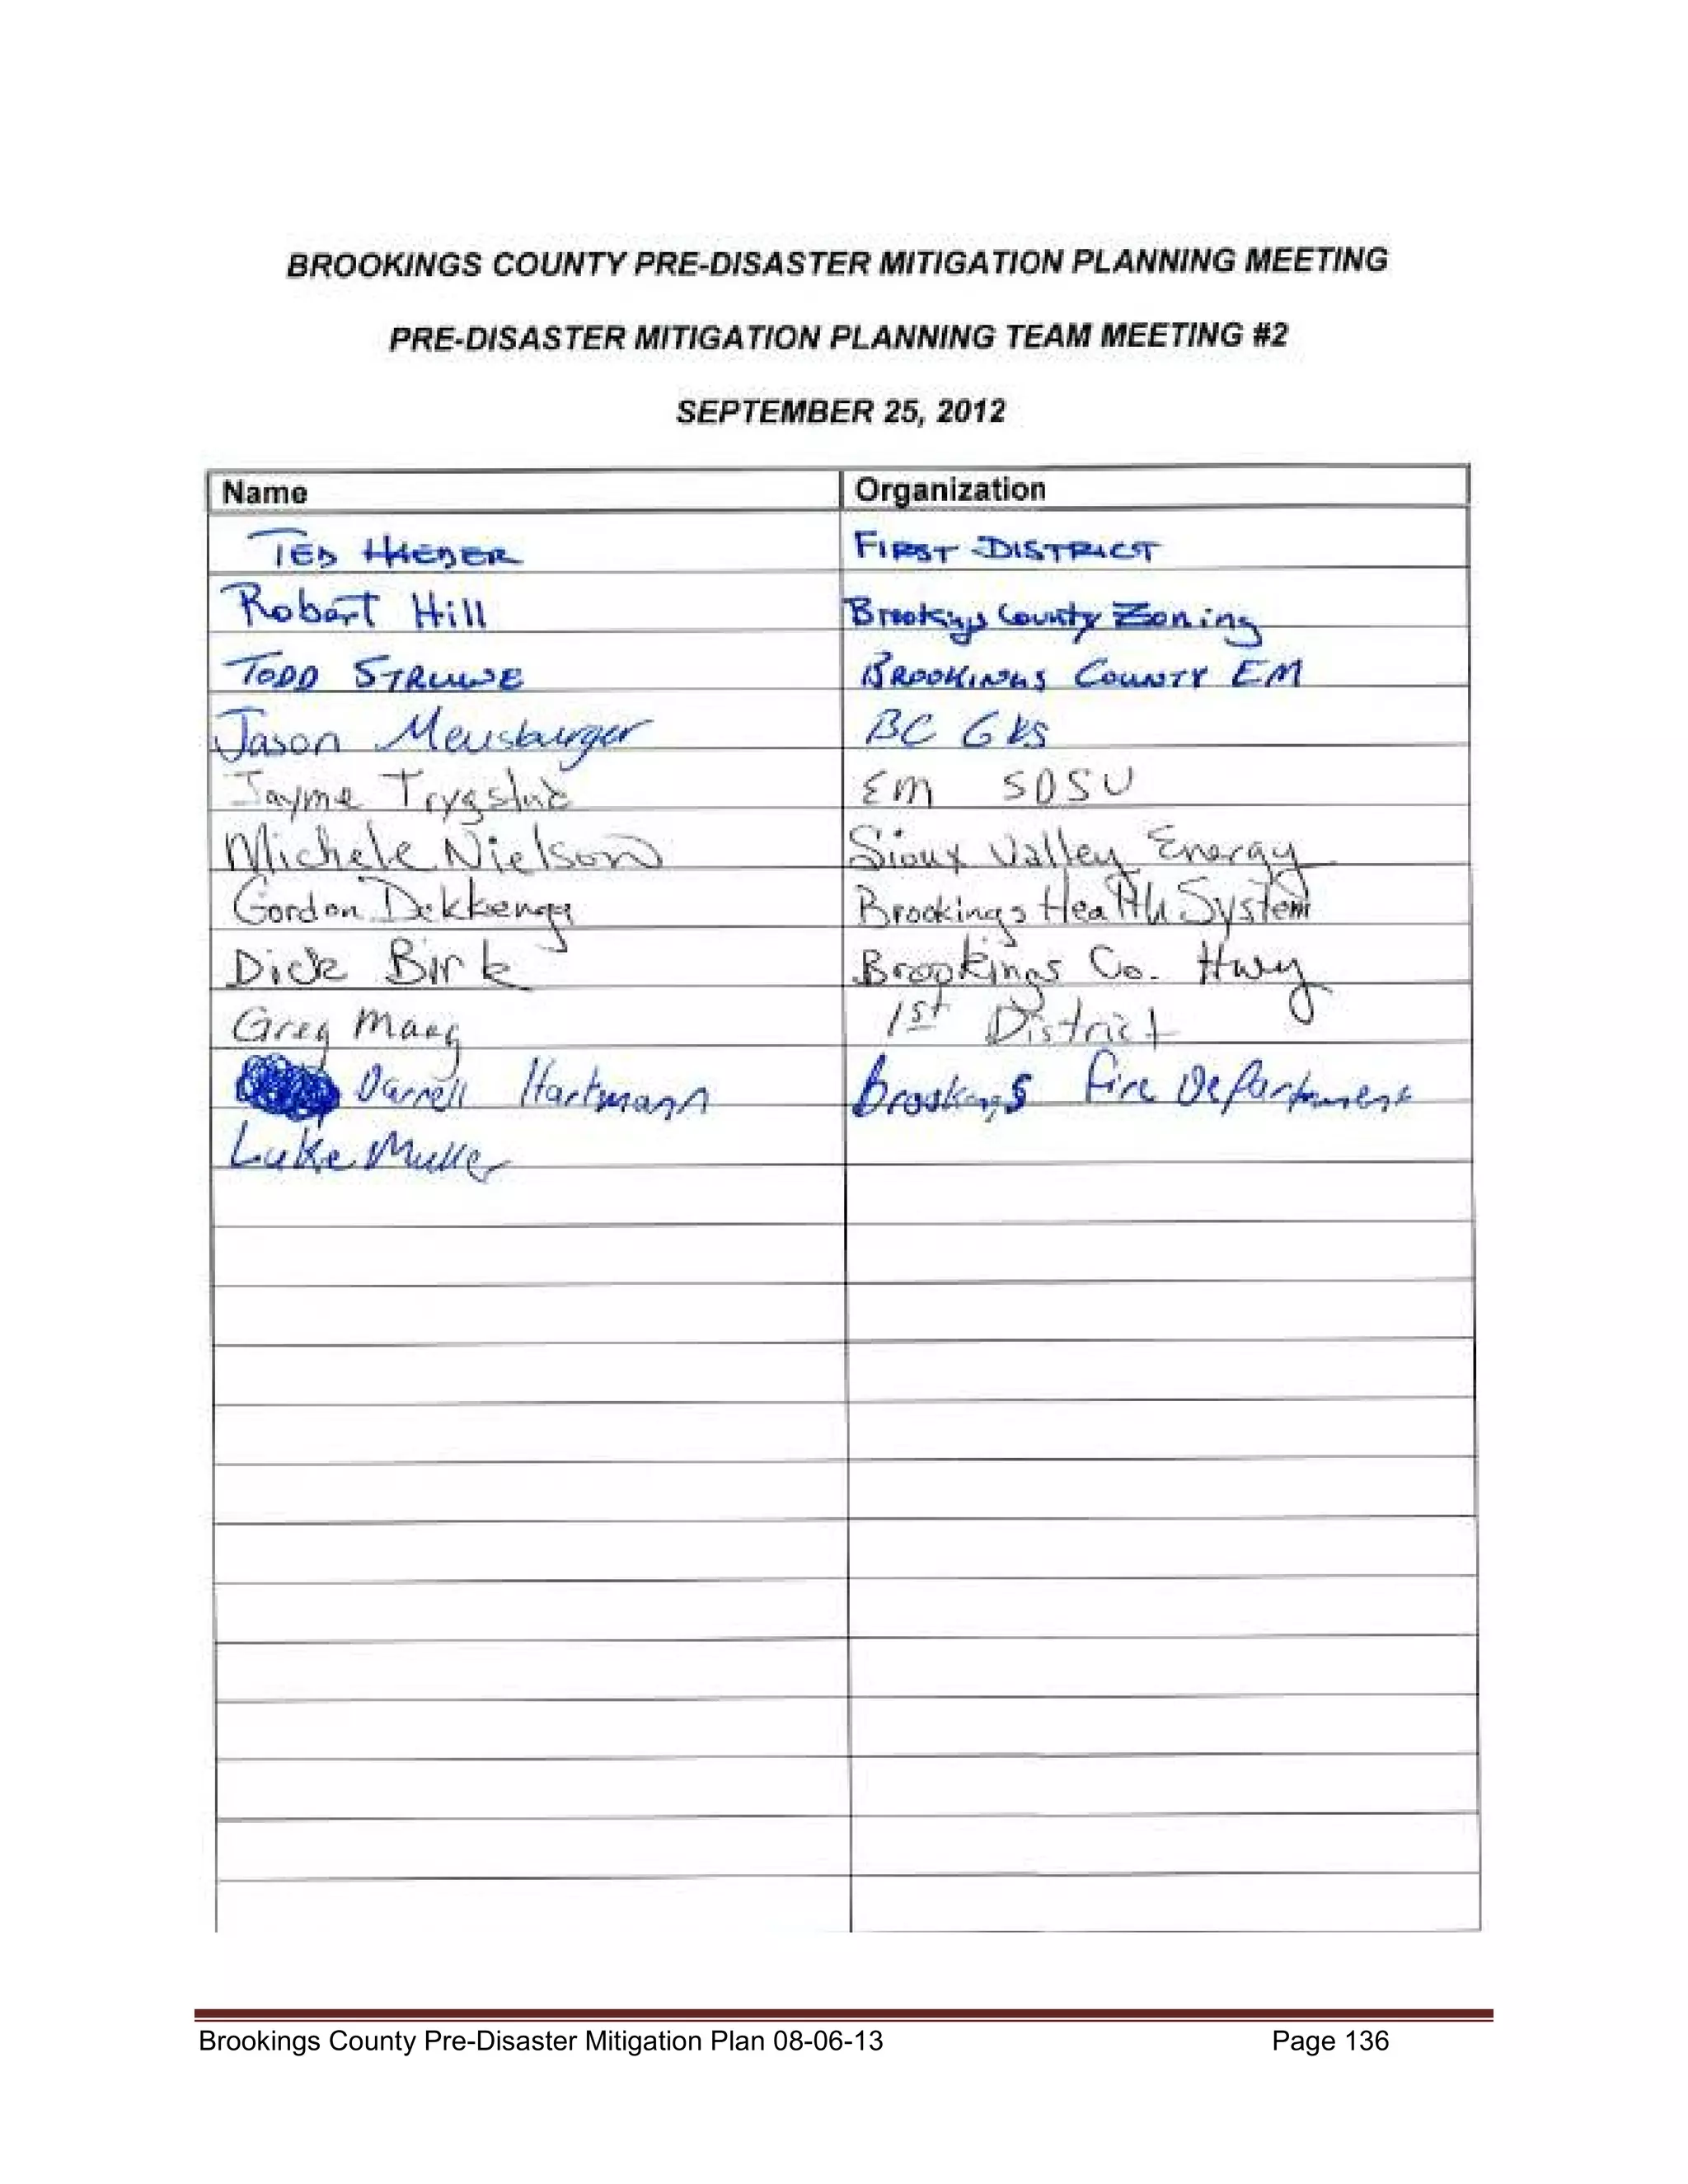 BROOKINGS COUNTY PRE-DISASTER MITIGATION PLANNING MEETING
PRE-DISASTER MITIGATION PLANNING TEAM MEETING #2
SEPTEMBER 25, 2012
Name Organization
TED HAEDER FIRST DISTRICT
Robert Hill Brookings County Zoning
TODD STRUWE BROOKINGS COUNTY EM
Jason Meusburger BC
Jayme Trygstad EM SDSU
Michele Nielson Sioux Valley Energy
Gordon Dekkenga Brookings Health System
Dick Birk Brookings Co. Hwy
Greg Maag 1st District
Darrell Hartmann Brookings Fire Department
Luke Muller
Brookings County Pre-Disaster Mitigation Plan 08-06-13 Page 136